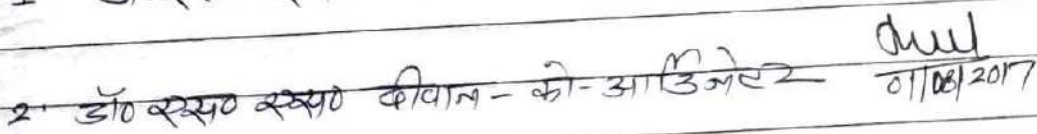 2. डॉ० एस० एस० दीवान - को-आर्डिनेटर
01/08/2017